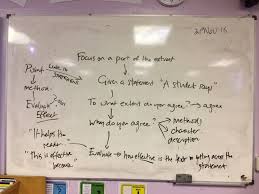 21 Nov 16
Focus on a part of the extract
Given a statement "A student says"
To what extent do you agree? → agree
Why do you agree? → methods
character
description
Evaluate → how effective is the text in
statement
Point
method
Evaluate
Effect
"It helps the
reader
"This is effective
because